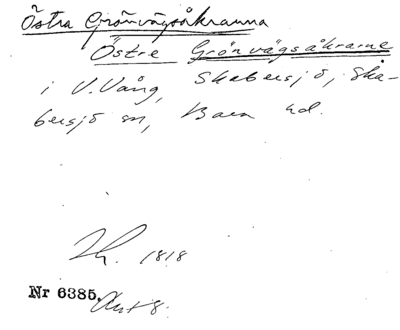 Östra Grönvägsåkranna
Östre Grönvägsåkrarne
i V. Vång, Skabersjö, Ska-
bersjö sn, Bara hd.
1818
Nr 6385.